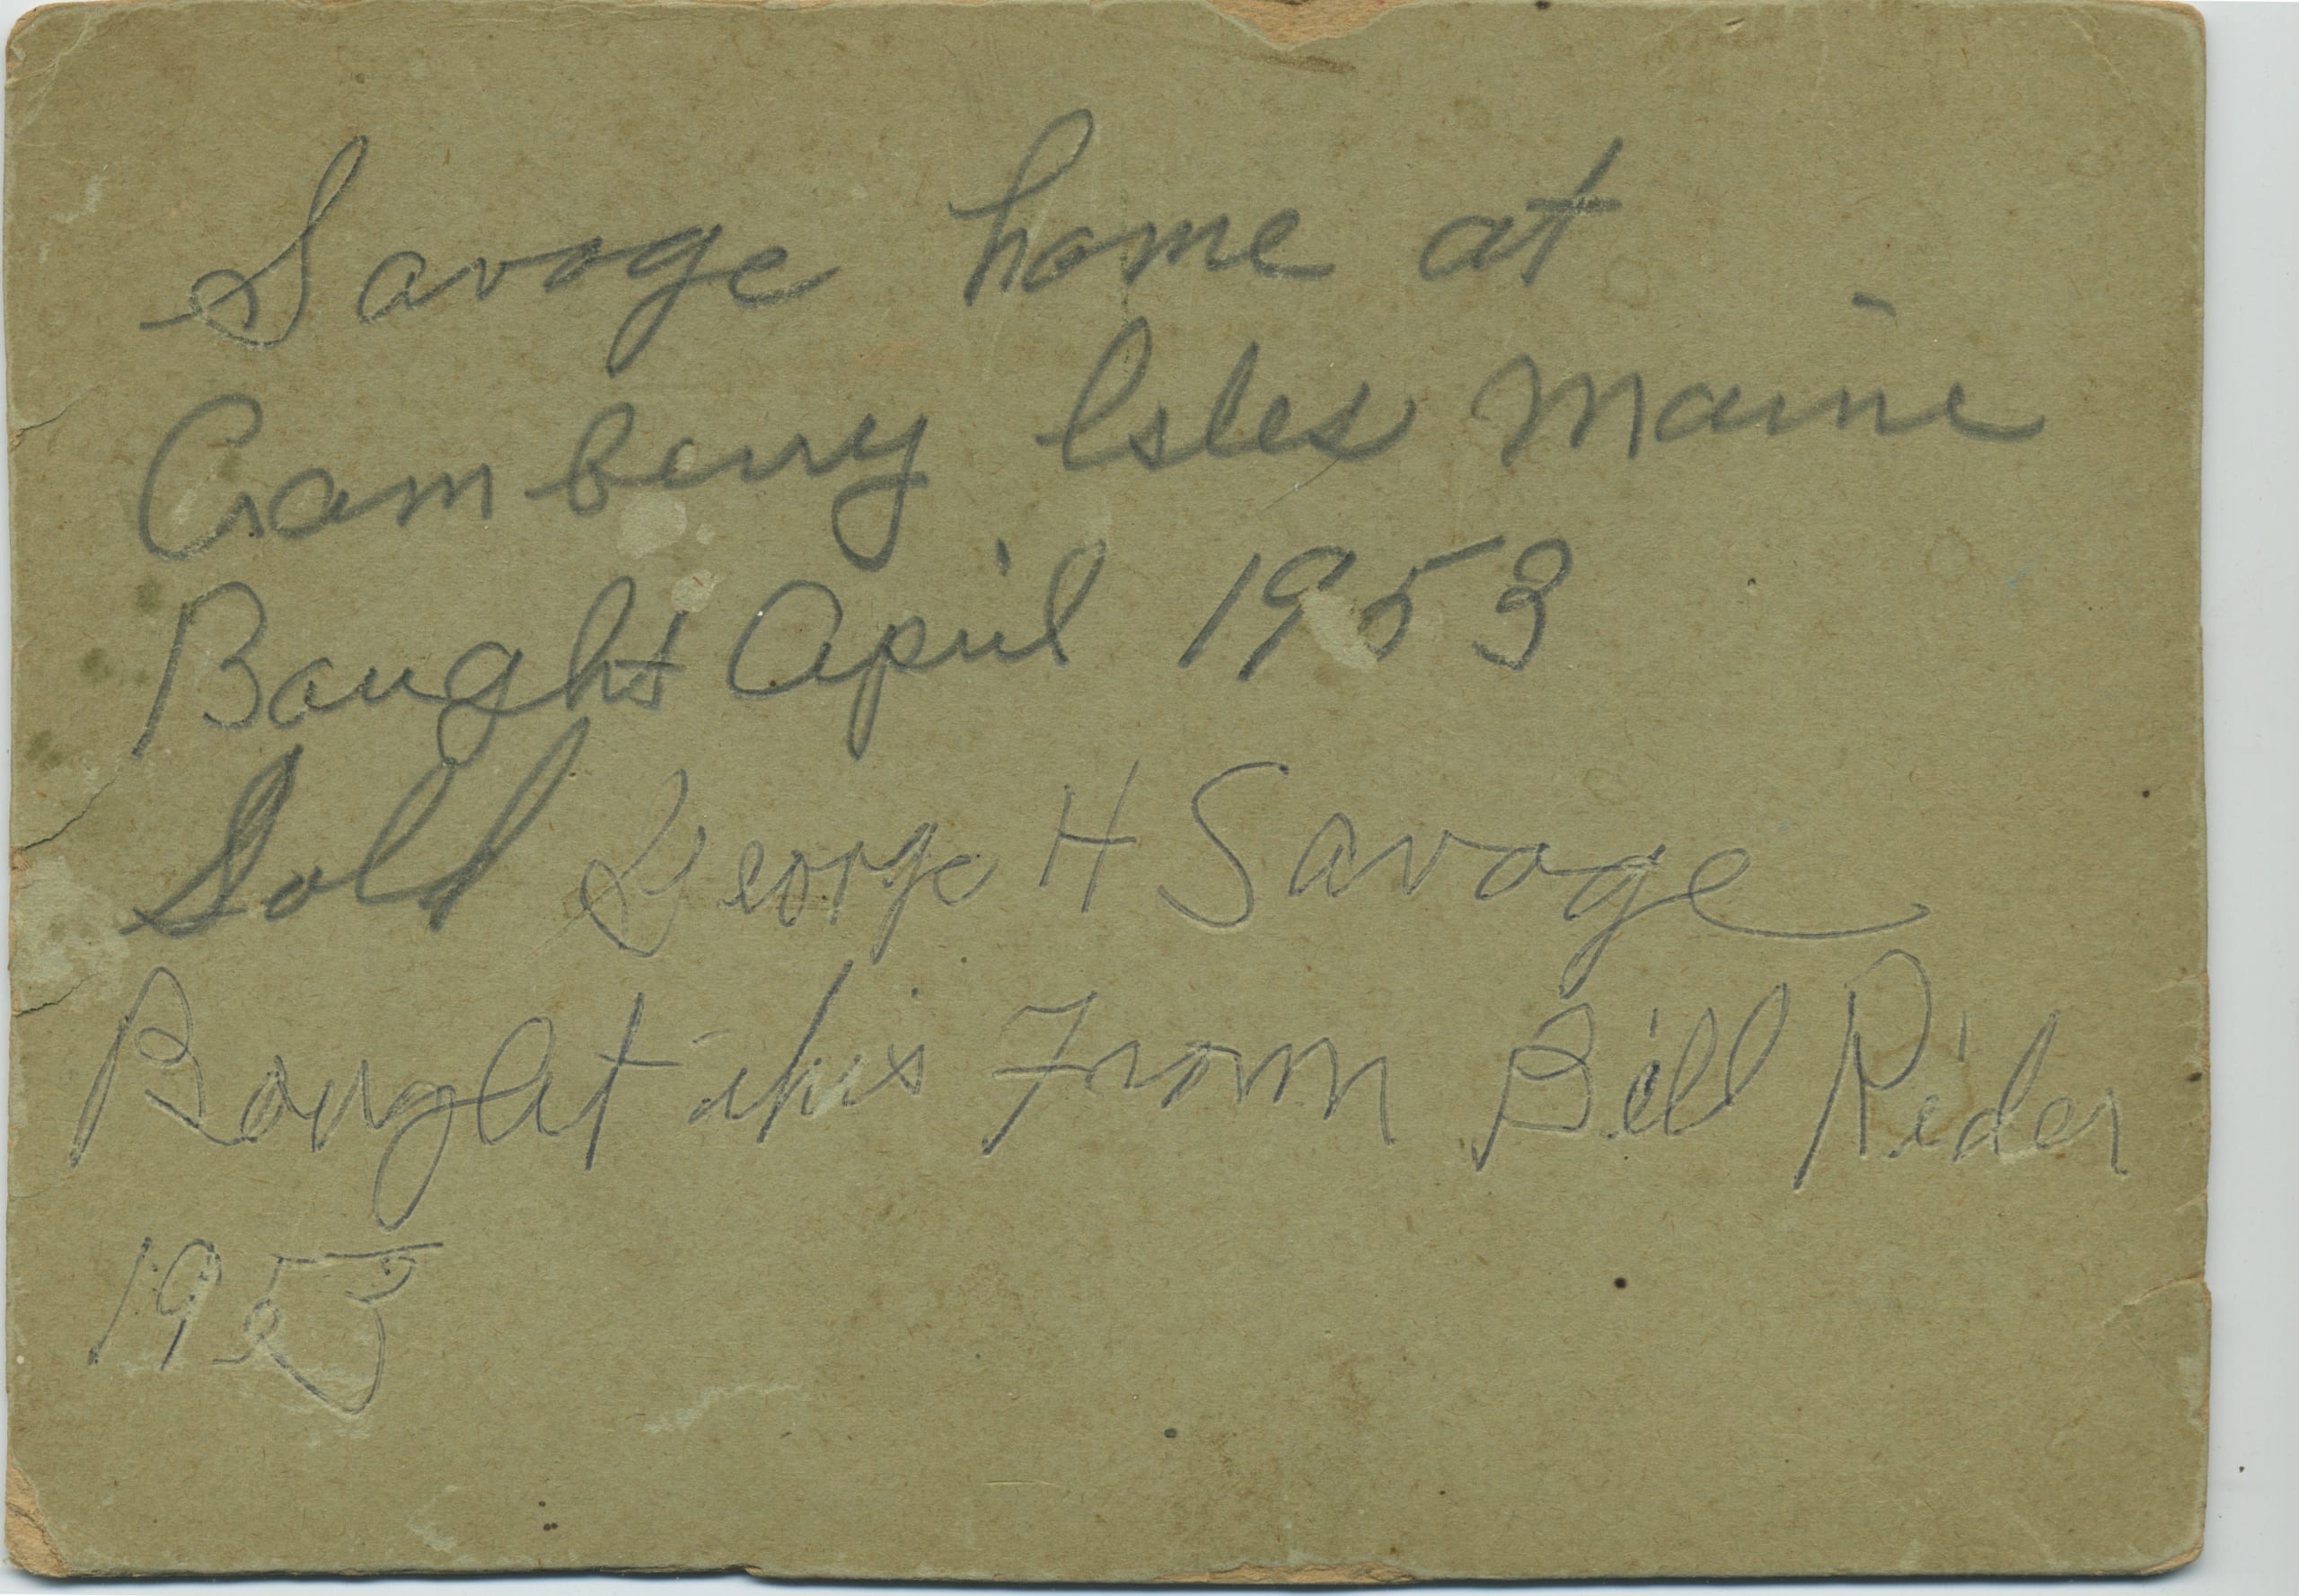 Savage home at
Cramberry Isles Maine
Bought April 1953
Sold George H Savage
Bought this From Bill Rider
1953